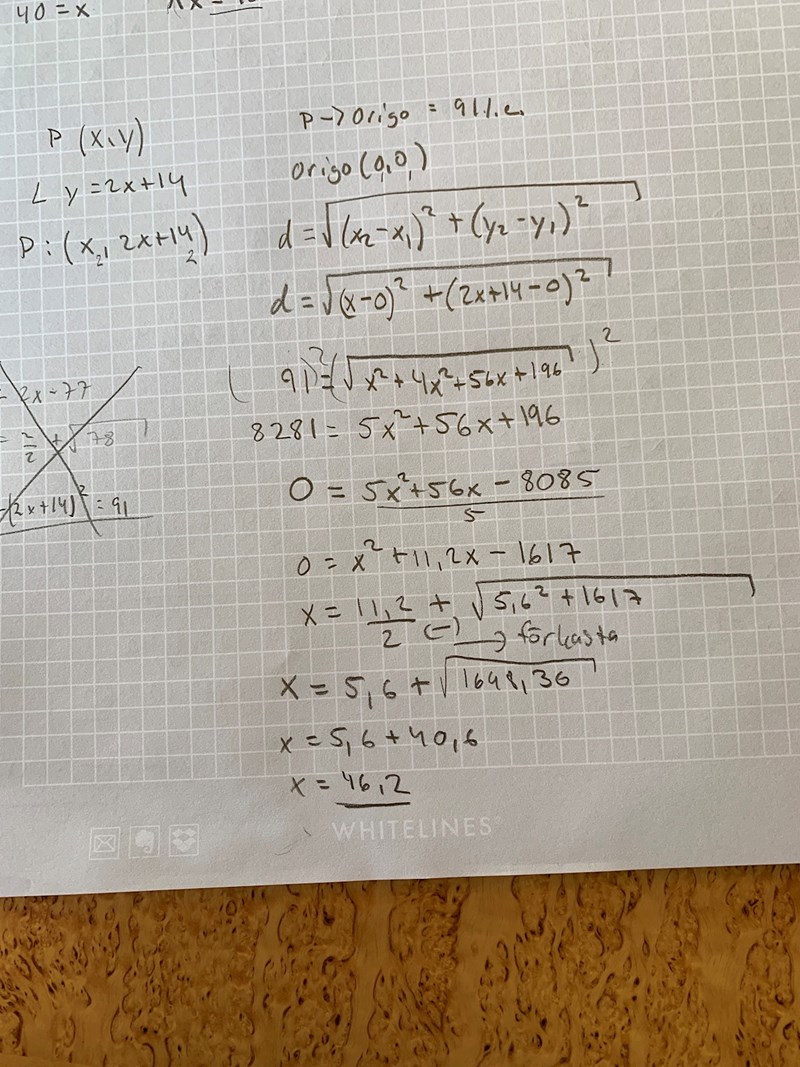 40 = x
P (x,y)
L y = 2x+14
P: (x₂, 2x+14₂)
P → Origo = 91 l.e.
origo (0,0,)
d = √(x₂-x₁)² + (y₂-y₁)²
d = √(x-0)² + (2x+14-0)²
( 91)² = (√x²+4x²+56x+196)²
8281 = 5x²+56x+196
0 = 5x²+56x - 8085
5
0 = x² + 11,2x - 1617
x = 11,2 + √5,6² + 1617
2 (-) → förkasta
x = 5,6 + √1648,36
x = 5,6 + 40,6
x = 46,2
= 2x - 77
= 2/2 + √78
-(2x+14)² = 91
WHITELINES®